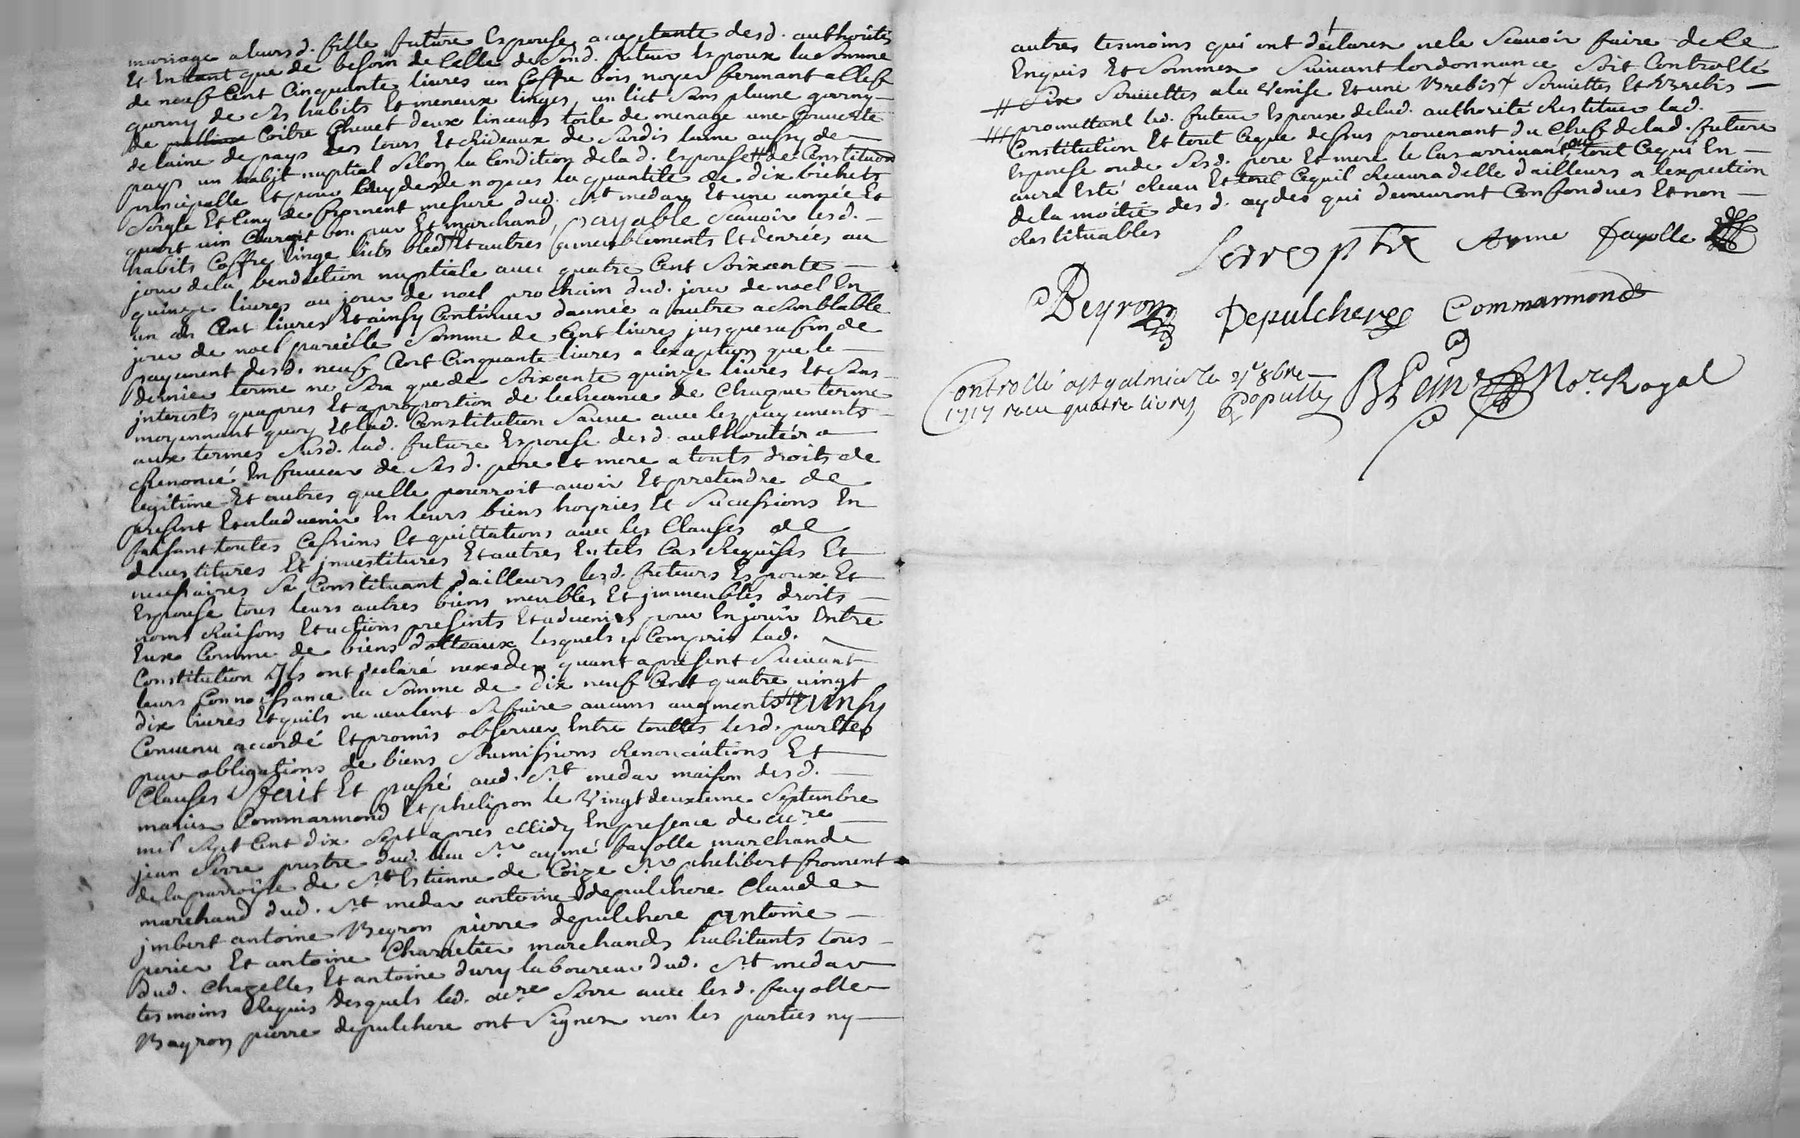 mariage a leurs d. fille future Espouse acceptante desd. authorités
Et Entant que de besoin de Celle de Sond. futeur Espoux la Somme
de neuf Cent Cinquante livres un Coffre bois noyer fermant a Clef
garny de Ses habits Et meneux linges, un lict Sans plume garny
de Coitre Chevet deux linceuls toile de menage une Couverte
de laine de pays des tours Et Rideaux de Sardis laine aussy de
pays un habit nuptial Selon la Condition de lad. Espouse # de Constitution
principalle Et pour Aydes de nopces la quantité de dix bichets
Seigle Et Cinq de froment mesure dud. St medar Et une année Et
quart vin Clairet bon pur Et marchand, payable Scavoir lesd.
habits Coffre linge licts bled # Et autres fameublements Et denrées au
jour de la benediction nuptiale avec quatre Cent Soixante
quinze livres au jour de noel prochain dud. jour de noel En
un an Cent livres Et ainsy Continuer dannée a autre a Semblable
jour de noel pareille Somme de Cent livres jusques a fin de
payement desd. neuf Cent Cinquante livres a lexception que le
dernier terme ne Sera que de Soixante quinze livres Et Sans
interests quapres Et a proportion de lecheance de Chaque terme
moyennant quoy Et lad. Constitution Sauve avec les payements
aux termes Susd. lad. future Espouse desd. authoritées a
Renoncé En faveur de Sesd. pere Et mere a touts droits de
legitime Et autres quelle pourroit avoir Et pretendre de
present Et a ladvenir En leurs biens hoyries Et Sucessions En
faisant toutes Cessions Et quittations avec les Clauses de
devestitures Et jnvestitures Et autres En tels Cas Requises Et
necessaires Se Constituant dailleurs lesd. futeurs Espoux Et
Espouse tous leurs autres biens meubles Et jmmeubles droits
noms Raisons Et actions presents Et advenirs pour En jouir Entre
Eux Comme de biens dotteaux lesquels y Compris lad.
Constitution Jls ont declaré nexceder quant a present Suivant
leurs Connoissance la Somme de dix neuf Cent quatre vingt
dix livres Et quils ne veulent Se faire aucuns augments # Ainsy
Convenu accordé Et promis observer Entre touttes lesd. parties
par obligations de biens Soumissions Renonciations Et
Clauses, fait Et passé aud. St medar maison desd.
mariés Commarmond Et phelipon le Vingt deuxieme Septembre
mil Sept Cent dix Sept apres Midy En presence de Mre
jean Serre prestre dud. lieu Sr aymé fayolle marchand
de la parroisse de St Estienne de Coize Sr philibert froment
marchand dud. St medar antoine depulchere Claude
jmbert antoine Beyron pierre depulchere antoine
perier Et antoine Charretier marchands habitants tous
dud. Chazelles Et antoine dury laboureur dud. St medar
tesmoins Requis desquels led. Mre Serre avec lesd. fayolle
Bayron pierre depulchere ont Signer non les parties ny
autres tesmoins qui ont declarer ne le Scavoir faire de Ce
Enquis Et Sommer Suivant lordonnance Soit Controllé
# Six Serviettes a la Venise Et une Brebis # Serviettes Et Brebis
### promettant led. futeur Espoux de lad. authorité Restituer lad.
Constitution Et tout Ceque dessus provenant du Chef de lad. future
Espouse ou de Sesd. pere Et mere le Cas arrivant tout Cequi En
aura Esté Receu Et Cequil Recevra delle dailleurs a lexception
de la moitié desd. aydes qui demeuront Confondues Et non
Restituables
Serre ptre Ayme fayolle
a Beyron Depulchere Commarmond
Controllé a St galmier le 8bre
1717 receu quatre livres
No.re Royal